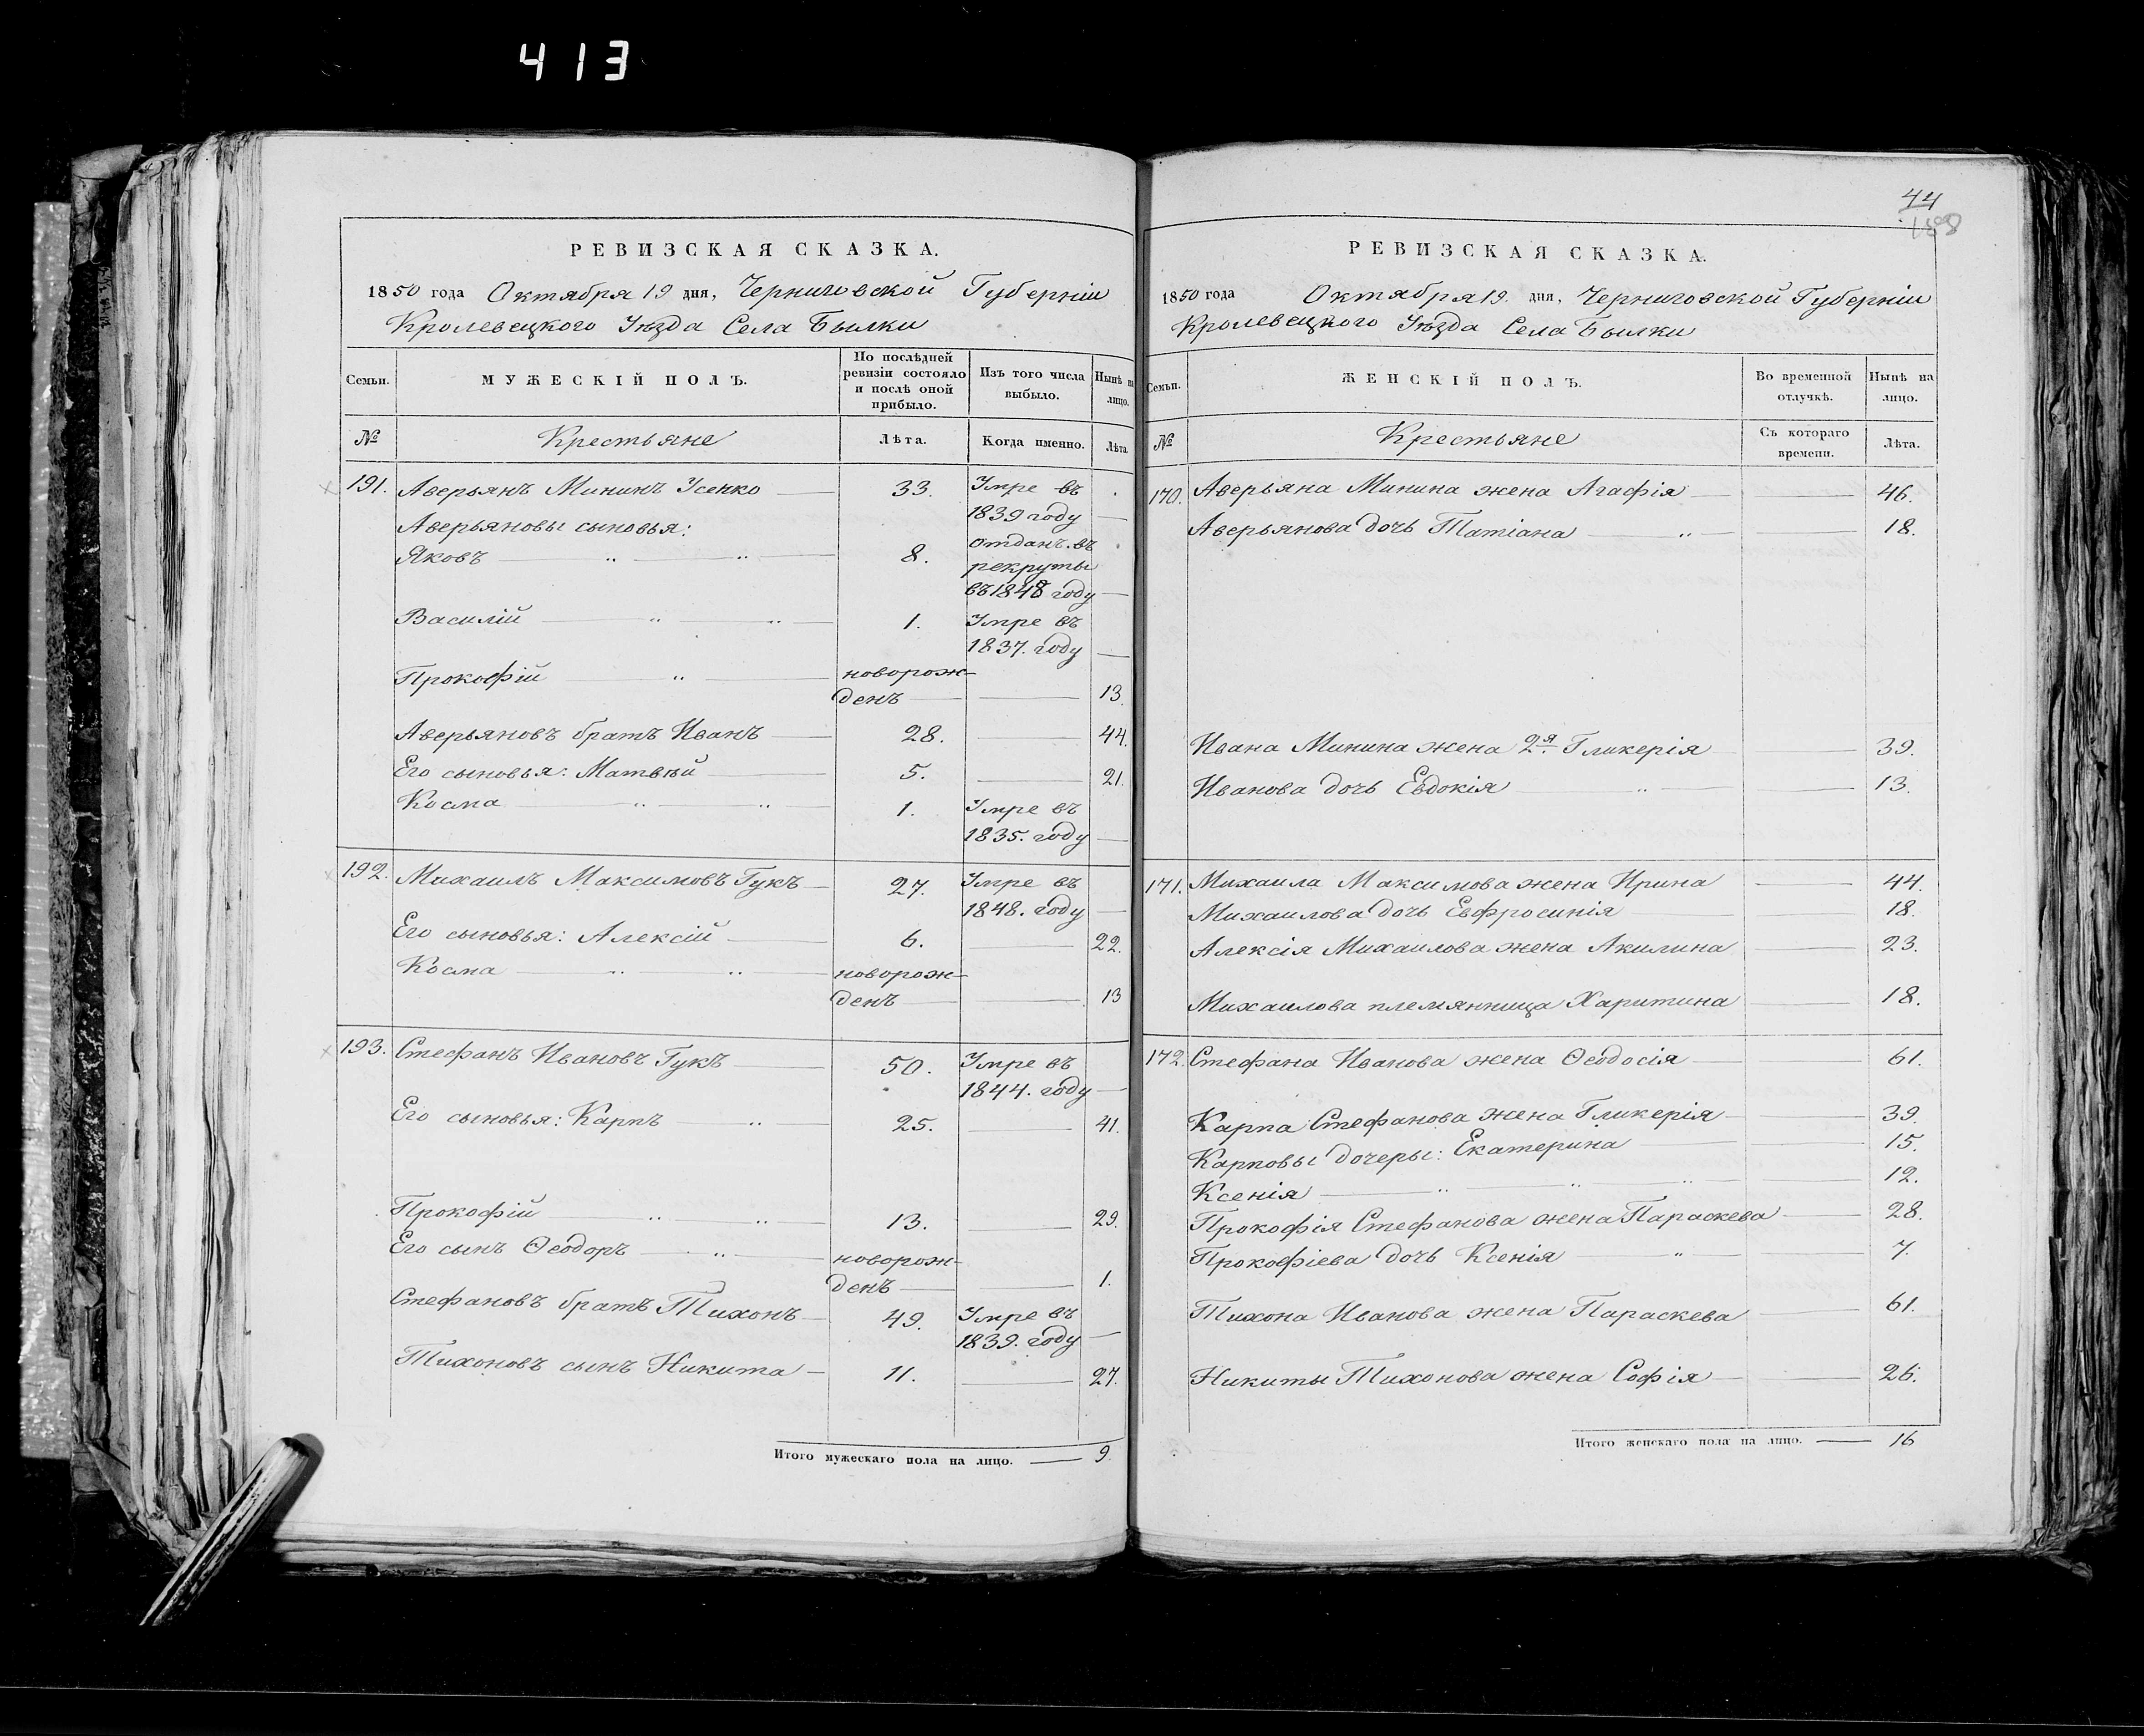 413
РЕВИЗСКАЯ СКАЗКА.
1850 года Октября 19 дня, Черниговской Губерніи
Кролевецкого Уѣзда Села Былки
Семьи.
МУЖЕСКІЙ ПОЛЪ.
По послѣдней
ревизіи состояло
и послѣ оной
прибыло.
Изъ того числа
выбыло.
Нынѣ на
лицо.
№
Крестьяне
Лѣта.
Когда именно.
Лѣта
191. Аверьянъ Мининъ Усенко 33. Умре въ
1839 году
Аверьяновы сыновья:
Яковъ 8. отданъ въ
рекруты
въ 1848 году
Василій 1. Умре въ
1837. году
Прокофій новорож-
денъ 13.
Аверьяновъ братъ Иванъ 28. 44.
Его сыновья: Матвѣй 5. 21.
Косма 1. Умре въ
1835. году
192. Михаилъ Максимовъ Гукъ 27. Умре въ
1848. году
Его сыновья: Алексій 6. 22.
Косма новорож-
денъ 13
193. Стефанъ Ивановъ Гукъ 50. Умре въ
1844. году
Его сыновья: Карпъ 25. 41.
Прокофій 13. 29.
Его сынъ Ѳеодоръ новорож-
денъ 1.
Стефановъ братъ Тихонъ 49. Умре въ
1839. году
Тихоновъ сынъ Никита 11. 27.
Итого мужескаго пола на лицо. 9.
44
188
РЕВИЗСКАЯ СКАЗКА.
1850 года Октября 19. дня, Черниговской Губерніи
Кролевецкого Уѣзда Села Былки
Семьи.
ЖЕНСКІЙ ПОЛЪ.
Во временной
отлучкѣ.
Нынѣ на
лицо.
№
Крестьяне
Съ котораго
времени.
Лѣта.
170. Аверьяна Минина жена Агафія 46.
Аверьянова дочь Татіана 18.
Ивана Минина жена 2я Гликерія 39.
Иванова дочь Евдокія 13.
171. Михаила Максимова жена Ирина 44.
Михаилова дочь Евфросинія 18.
Алексія Михаилова жена Акилина 23.
Михаилова племянница Харитина 18.
172. Стефана Иванова жена Ѳеодосія 61.
Карпа Стефанова жена Гликерія 39.
Карповы дочеры: Екатерина 15.
Ксенія 12.
Прокофія Стефанова жена Параскева 28.
Прокофіева дочь Ксенія 7.
Тихона Иванова жена Параскева 61.
Никиты Тихонова жена Софія 26.
Итого женскаго пола на лицо. 16